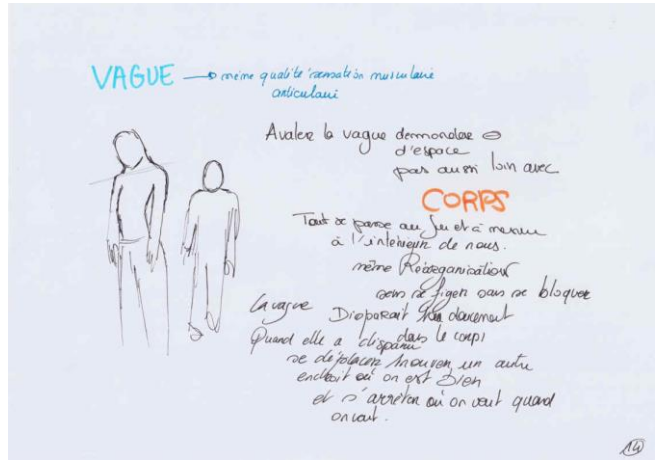 VAGUE → même qualité sensation musculaire
articulaire
Avaler la vague demander ⊖
d'espace
pas aussi loin avec
CORPS
Tout se passe au fur et à mesure
à l'intérieur de nous.
même Réorganisation
sans se figer sans se bloquer
La vague Disparait doucement
dans le corps
Quand elle a disparu
se déplacer trouver un autre
endroit où on est bien
et s'arrêter où on veut quand
on veut.
14